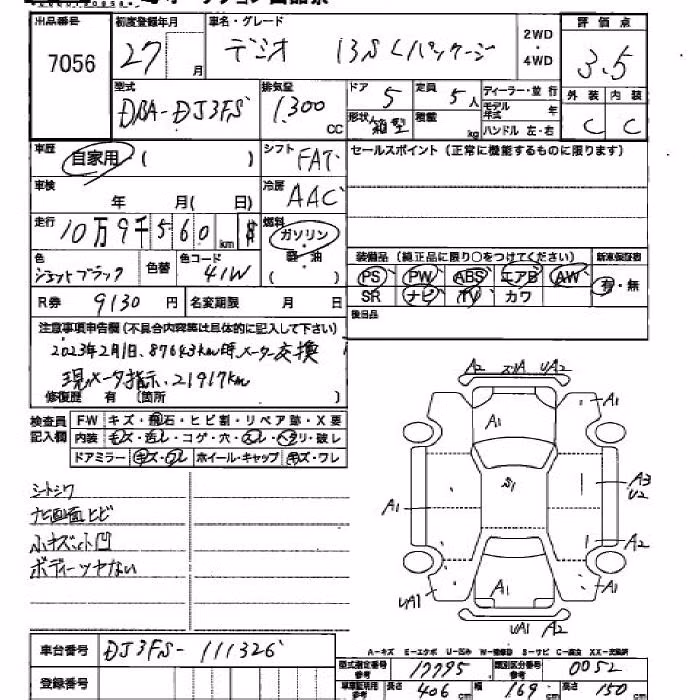 出品番号 初度登録年月 車名・グレード 2WD・4WD 評価点
7056 27 月 デミオ 13S Lパッケージ 3.5
型式 排気量 ドア 定員 ディーラー・並行 外装 内装
DBA-DJ3FS 1300 CC 5 5人 モデル年式 年 C C
形状 箱型 積載 kg ハンドル 左・右
車歴 自家用 ( ) シフト FAT セールスポイント(正常に機能するものに限ります)
車検 年 月( 日) 冷房 AAC
走行 10万9千560 km 燃料 ガソリン・軽油 ( )
色 ジェットブラック 色替 色コード 41W
装備品(純正品に限り○をつけてください) 新車保証書
PS PW ABS エアB AW 有・無
SR ナビ TV カワ
R券 9130円 名変期限 月 日 後日品
注意事項申告欄(不具合内容等は具体的に記入して下さい)
2023年2月1日、87643km時メーター交換
現メータ指示、21917km
修復歴 有 (箇所 )
検査員記入欄 FW キズ・飛石・ヒビ割・リペア跡・X要
内装 キズ・汚レ・コゲ・穴・スレ・ヘタリ・破レ
ドアミラー キズ・ワレ ホイール・キャップ キズ・ワレ
シートシワ
ナビ画面ヒビ
小キズ小凹
ボディーツヤない
A2 UA2
A1 A1
A1 S1 A3
U2
A2
UA1 A1 A1
UA1 A2
A-キズ E-エクボ U-凹み W-補修跡 S-サビ C-腐食 XX-交換済
車台番号 DJ3FS-111326
型式指定番号 参考 17795 類別区分番号 参考 0052
登録番号 車庫証明用 参考 長さ 406 cm 幅 169 cm 高さ 150 cm